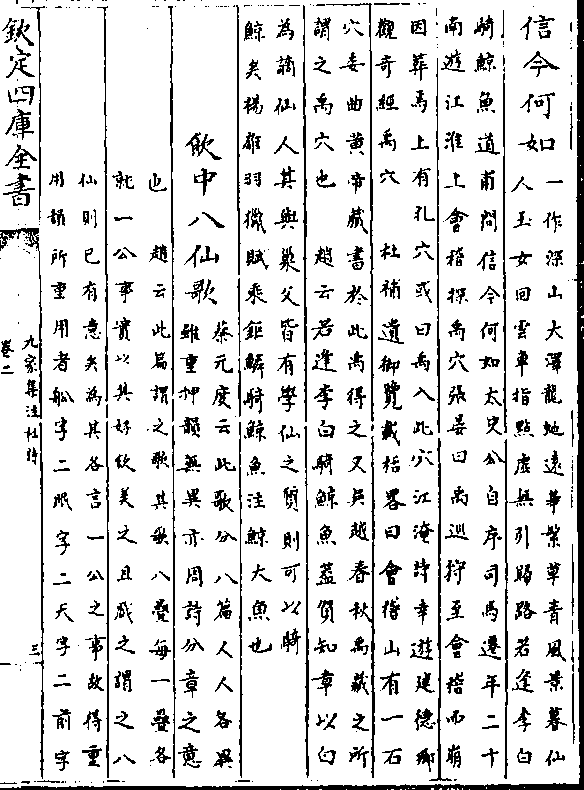 信今何如
一作深山大澤龍蛇遠華繁草青風景暮仙
人玉女回雲車指點虛無引歸路若逢李白
騎鯨魚道甫問信今何如太史公自序司馬遷年二十
南遊江淮上會稽探禹穴張晏曰禹巡狩至會稽而崩
因葬焉上有孔穴或曰禹入此穴江淹詩幸遊建德鄉
觀奇經禹穴　杜補遺御覽載括畧曰會稽山有一石
穴委曲黃帝藏書於此禹得之又吳越春秋禹藏之所
謂之禹穴也　趙云若逢李白騎鯨魚蓋賀知章以白
為謫仙人其與巢父皆有學仙之質則可以騎
鯨矣楊雄羽獵賦乘鉅鱗騎鯨魚注鯨大魚也
飲中八仙歌
蔡元度云此歌分八篇人人各異
雖重押韻無異亦周詩分章之意
也　趙云此篇謂之歌其歌八疊每一疊各
就一公事實以其好飲美之且戲之謂之八
仙則已有意矣為其各言一公之事故得重
用韻所重用者船字二眠字二天字二前字
欽定四庫全書
九家集注杜詩
卷二
三